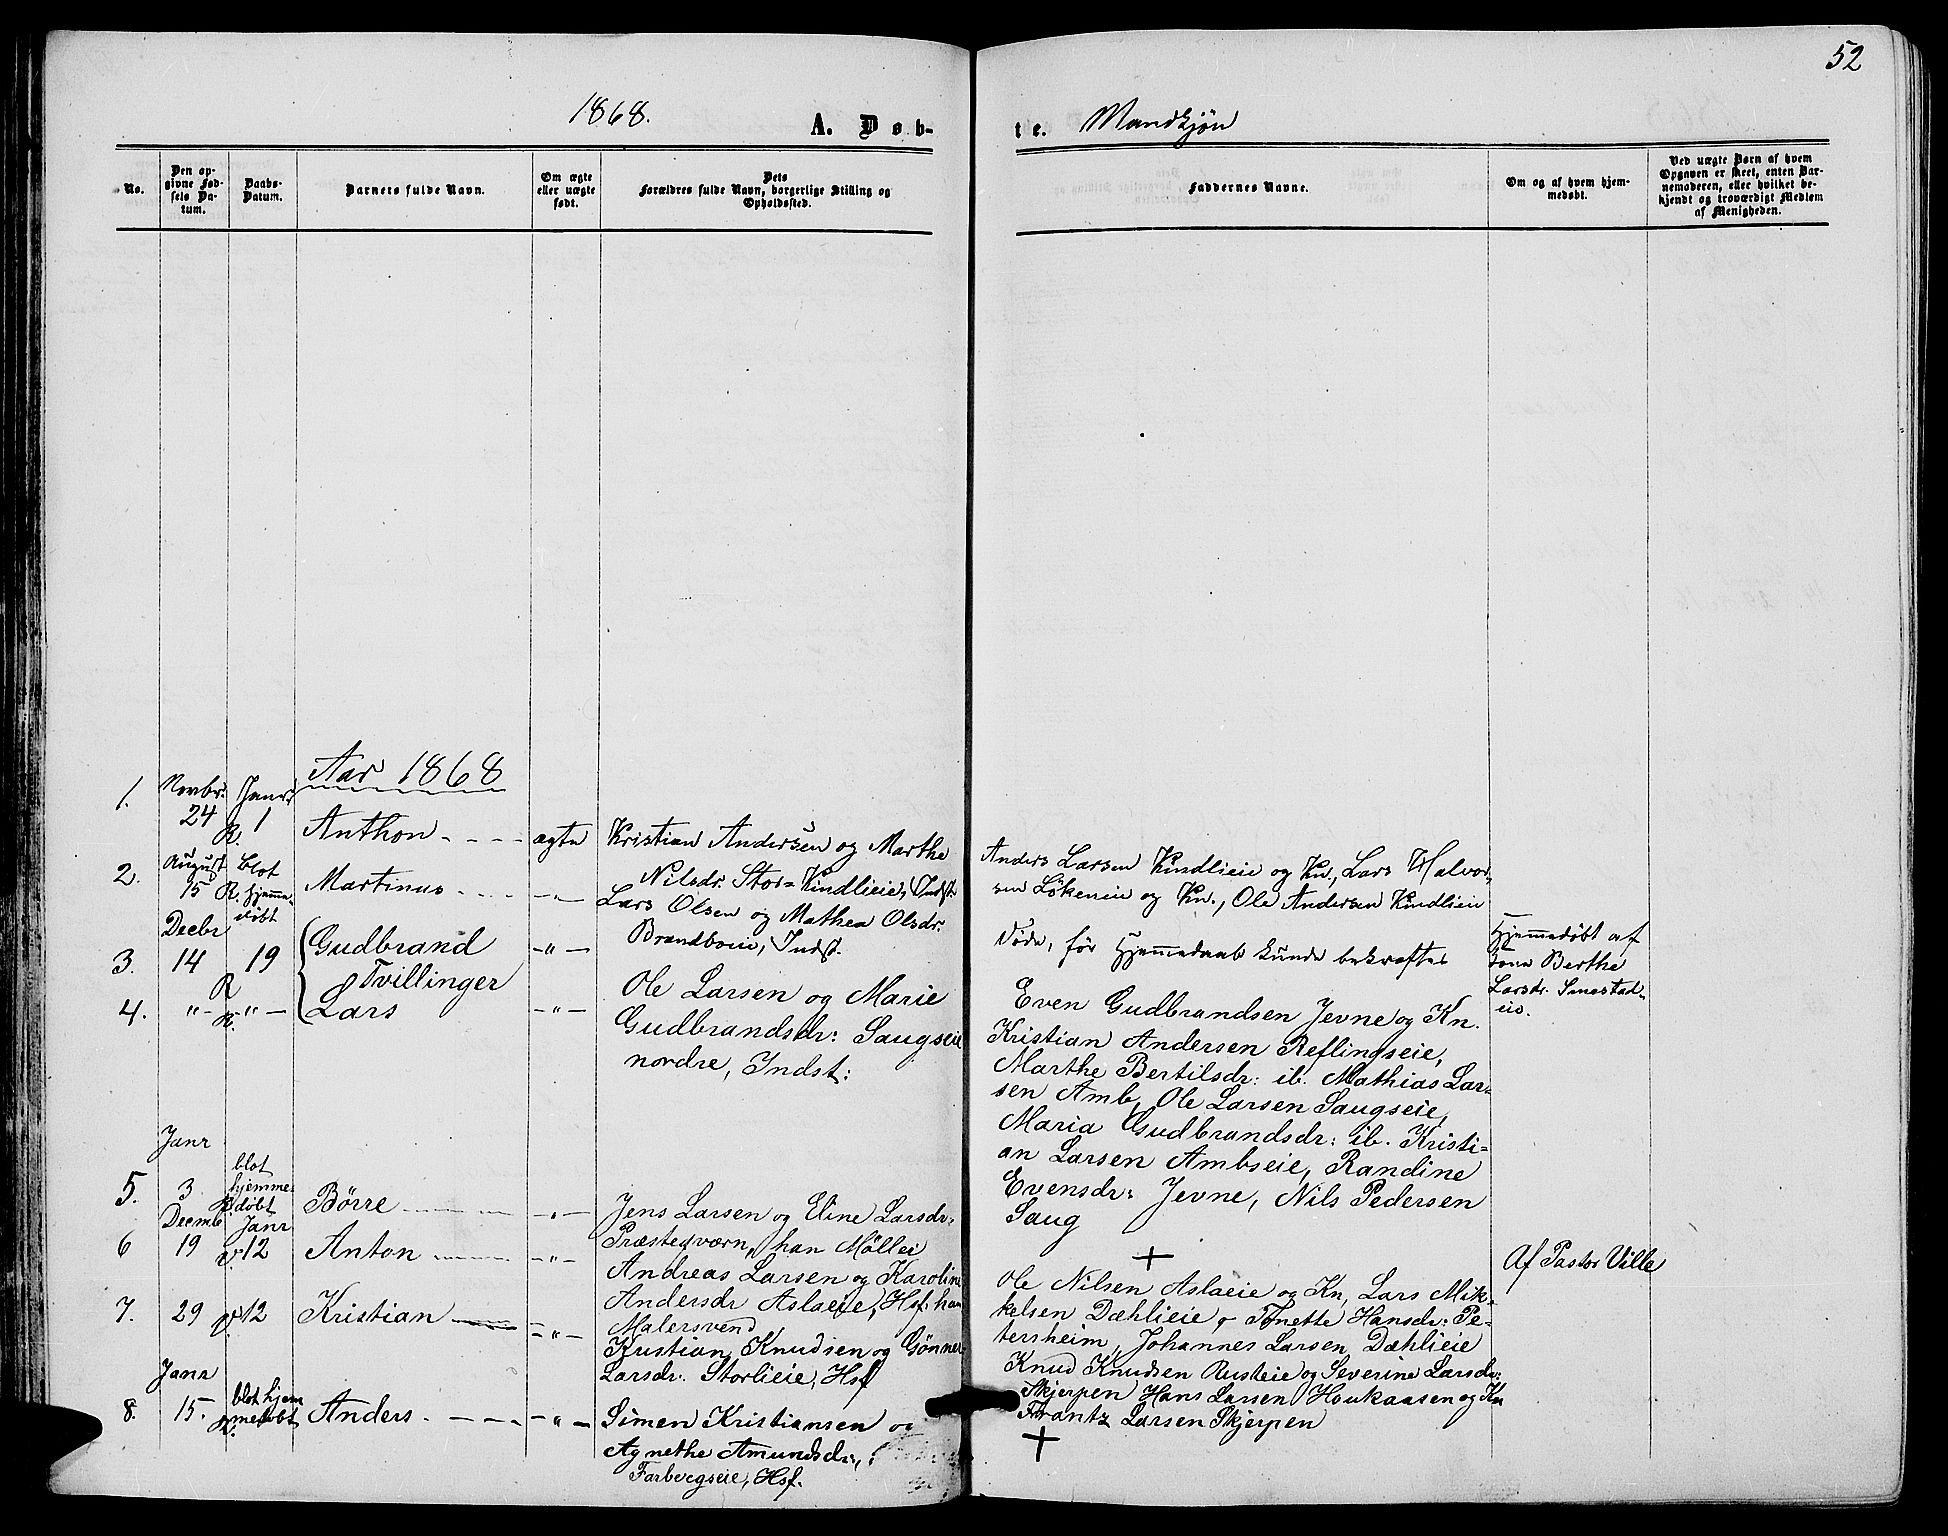 52
1868.
A. Døb-
te. Mandkjøn
No.
Den op-
givne Fød-
sels Da-
tum.
Daabs-
Datum.
Barnets fulde Navn.
Om ægte
eller uægte
født.
Dets
Forældres fulde Navn, borgerlige Stilling og
Opholdssted.
Faddernes Navne.
Om og af hvem hjem-
medøbt.
Ved uægte Børn af hvem
Opgaven er skeet, enten Bar-
nemoderen, eller hvilket be-
kjendt og troværdigt Medlem
af Menigheden.
Aar 1868
1. Novbr. 24 Janr. 1 R.
Anthon - - - - ægte
Kristian Andersen og Marthe
Nilsdr. Stor=Kindlieie, Indst.
Anders Larsen Kindlieie og Kn., Lars Halvor-
sen Lökeneie og Kn., Ole Andersen Kindlieie
2. August 15 R. blot
hjemme-
døbt
Martinus - - - - -"-
Lars Olsen og Mathea Olsdr.
Brandboeie, Indst.
Døde, før Hjemmedaab kunde bekræftes
Hjemmedøbt af
Kone Berthe
Larsdr. Smestad-
eie.
3. Decbr 14 19 R
Gudbrand -"-
Tvillinger
4. "- -"- R.
Lars -"-
Ole Larsen og Marie
Gudbrandsdr: Saugseie
nordre, Indst:
Even Gudbrandsen Jevne og Kn.
Kristian Andersen Reflingseie,
Marthe Bertilsdr: ib. Mathias Lar-
sen Amb, Ole Larsen Saugseie,
Maria Gudbrandsdr: ib. Kristi=
an Larsen Ambseie, Randine
Evensdr: Jevne, Nils Pedersen
Saug
5. Janr 3 blot
hjemme-
døbt
Børre -"-
Jens Larsen og Eline Larsdr.
Præsteqværn, han Møllei
+
Af Pastor Ville
6 Decmb 19 Janr 12
Anton -"-
Andreas Larsen og Karoline
Andersdr Aslaeie, Hsf. han
Malersvend
Ole Nilsen Aslaeie og Kn, Lars Mik-
kelsen Dæhlieie, Tonette Hansdr: Pe-
tersheim, Johannes Larsen Dæhlieie
7. 29 12
Kristian -"-
Kristian Knudsen og Gønner
Larsdr. Storlieie, Hsf
Knud Knudsen Rusteie og Severine Larsdr:
Skjerpen Hans Larsen Houkaasen og Kn
Frantz Larsen Skjerpen
8. Janr 15. blot hjem
medøbt
Anders. - - - -"-
Simen Kristiansen og
Agnethe Amundsdr.,
Farbergseie, Hsf.
+